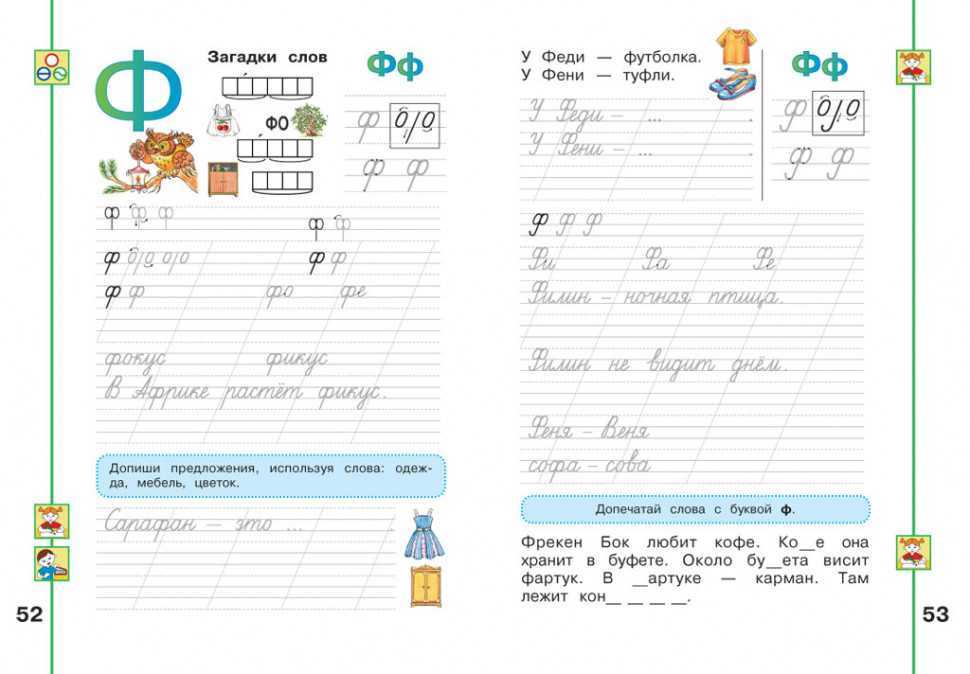 Ф
Загадки слов
Фф
ФО
ф
ф ф
ф ф ф
ф ф
ф
ф ф
ф ф
фо фе
фокус фикус
В Африке растёт фикус.
Допиши предложения, используя слова: одеж-
да, мебель, цветок.
Сарафан – это ... .
52
У Феди — футболка.
У Фени — туфли.
Фф
У Феди – ... .
У Фени – ... .
Ф
Ф Ф
Ф Ф Ф
Фи Фа Фе
Филин – ночная птица.
Филин не видит днём.
Феня – Веня
софа – сова
Допечатай слова с буквой ф.
Фрекен Бок любит кофе. Ко__е она
хранит в буфете. Около бу__ета висит
фартук. В __артуке — карман. Там
лежит кон__ __ __ __.
53